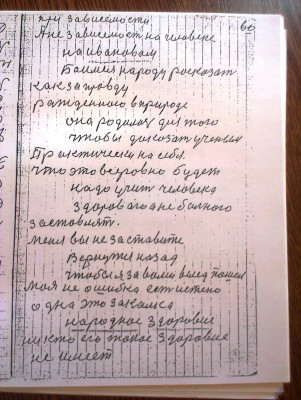 60
при зависемости
А не зависемост на человеке
на ивановам
Баимся народу росказат
как за правду
ражденного в природе
она родилас для того
чтобы доказат ученым
Практически на себя
что это всеровно будет
надо учит человека
здорового а не болного
заставлят.
меня вы не заставите
Вернутся назад
чтобы я за вами вслед пошол
моя не ошибка ест истено
одна это закалка
народное здоровие
никто его такое здоровие
не имеет